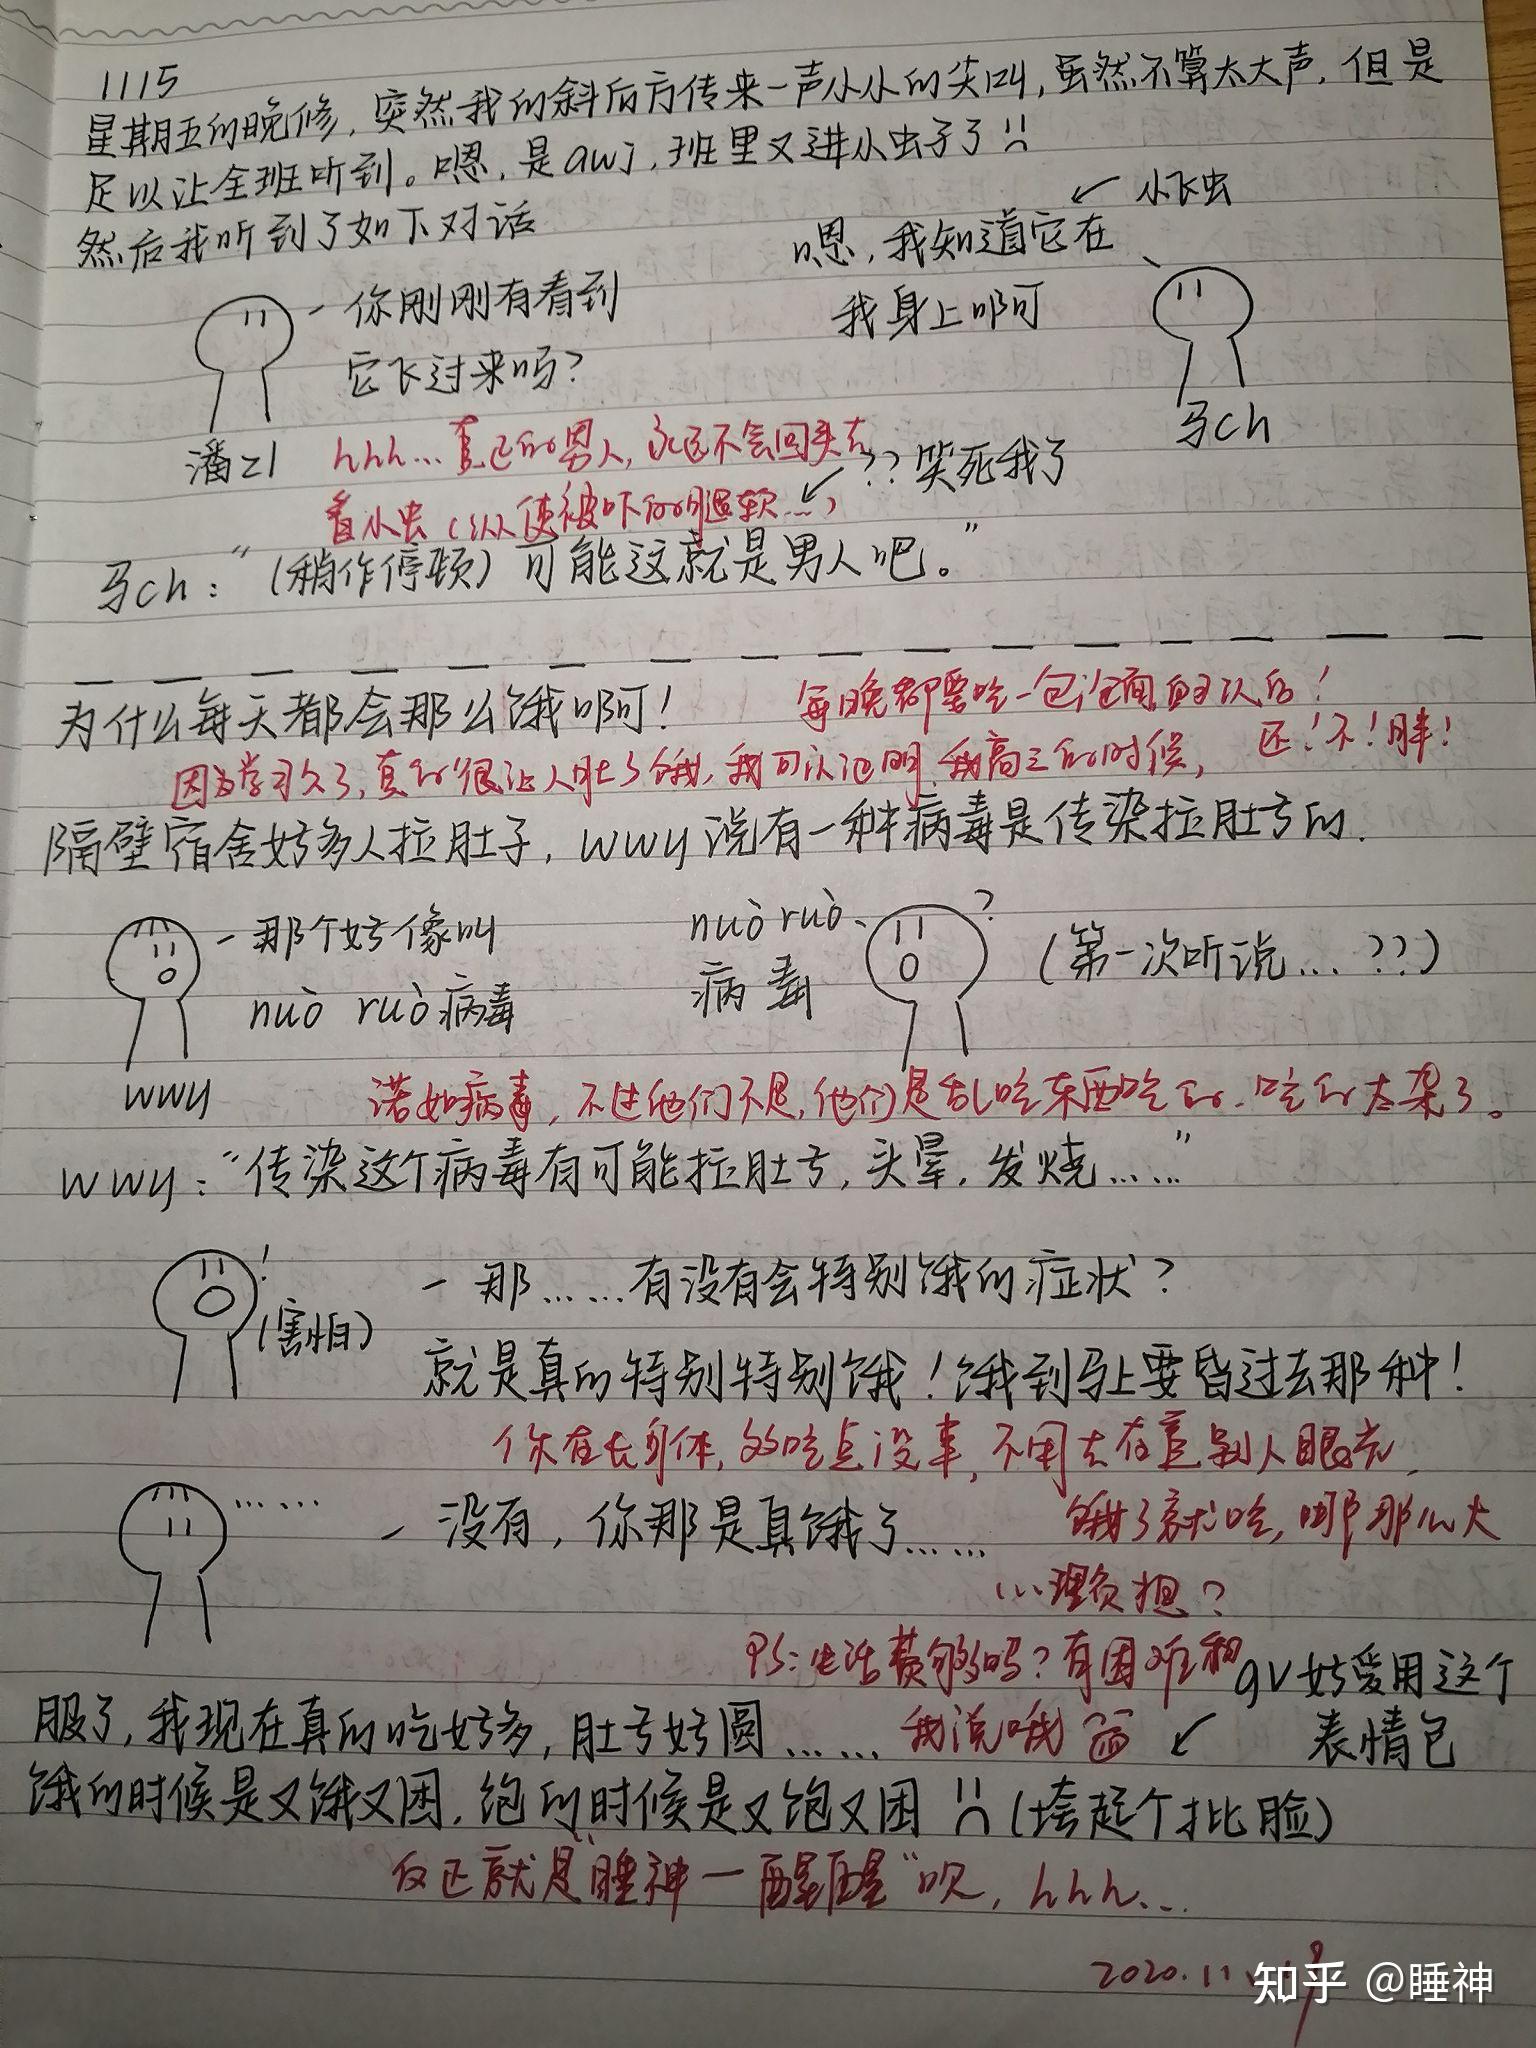 1115
星期五的晚修，突然我的斜后方传来一声小小的尖叫，虽然不算太大声，但是
足以让全班听到。嗯，是awj，班里又进小虫子了
然后我听到了如下对话
小飞虫
嗯，我知道它在
我身上啊
你刚刚有看到
它飞过来吗？
潘zl
马ch
hhh…真正的男人，永远不会回头去
看小虫（纵使被吓的腿软…）
??笑死我了
马ch：“（稍作停顿）可能这就是男人吧。”
为什么每天都会那么饿啊！
每晚都要吃一包泡面自习以后！
因为学习久了，真的很让人肚子饿，我可以证明，我高三的时候，
还！不！胖！
隔壁宿舍好多人拉肚子，wwy说有一种病毒是传染拉肚子的.
那个好像叫
nuò ruò病毒
nuò ruò
病毒
?
（第一次听说…??）
wwy
诺如病毒，不过他们不是，他们是乱吃东西吃的，吃的太杂了。
wwy：“传染这个病毒有可能拉肚子，头晕，发烧……”
!
（害怕）
－那……有没有会特别饿的症状？
就是真的特别特别饿！饿到马上要昏过去那种！
你在长身体，多吃点没事，不用去在意别人眼光，
……
－没有，你那是真饿了……
饿了就吃，哪那么大
心理负担？
PS：生活费够吗？有困难和
我说哦
gv好爱用这个
表情包
服了，我现在真的吃好多，肚子好圆……
饿的时候是又饿又困，饱的时候是又饱又困（垮起个批脸）
反正就是“睡神一醒醒”呗，hhh…
2020.11
知乎 @睡神